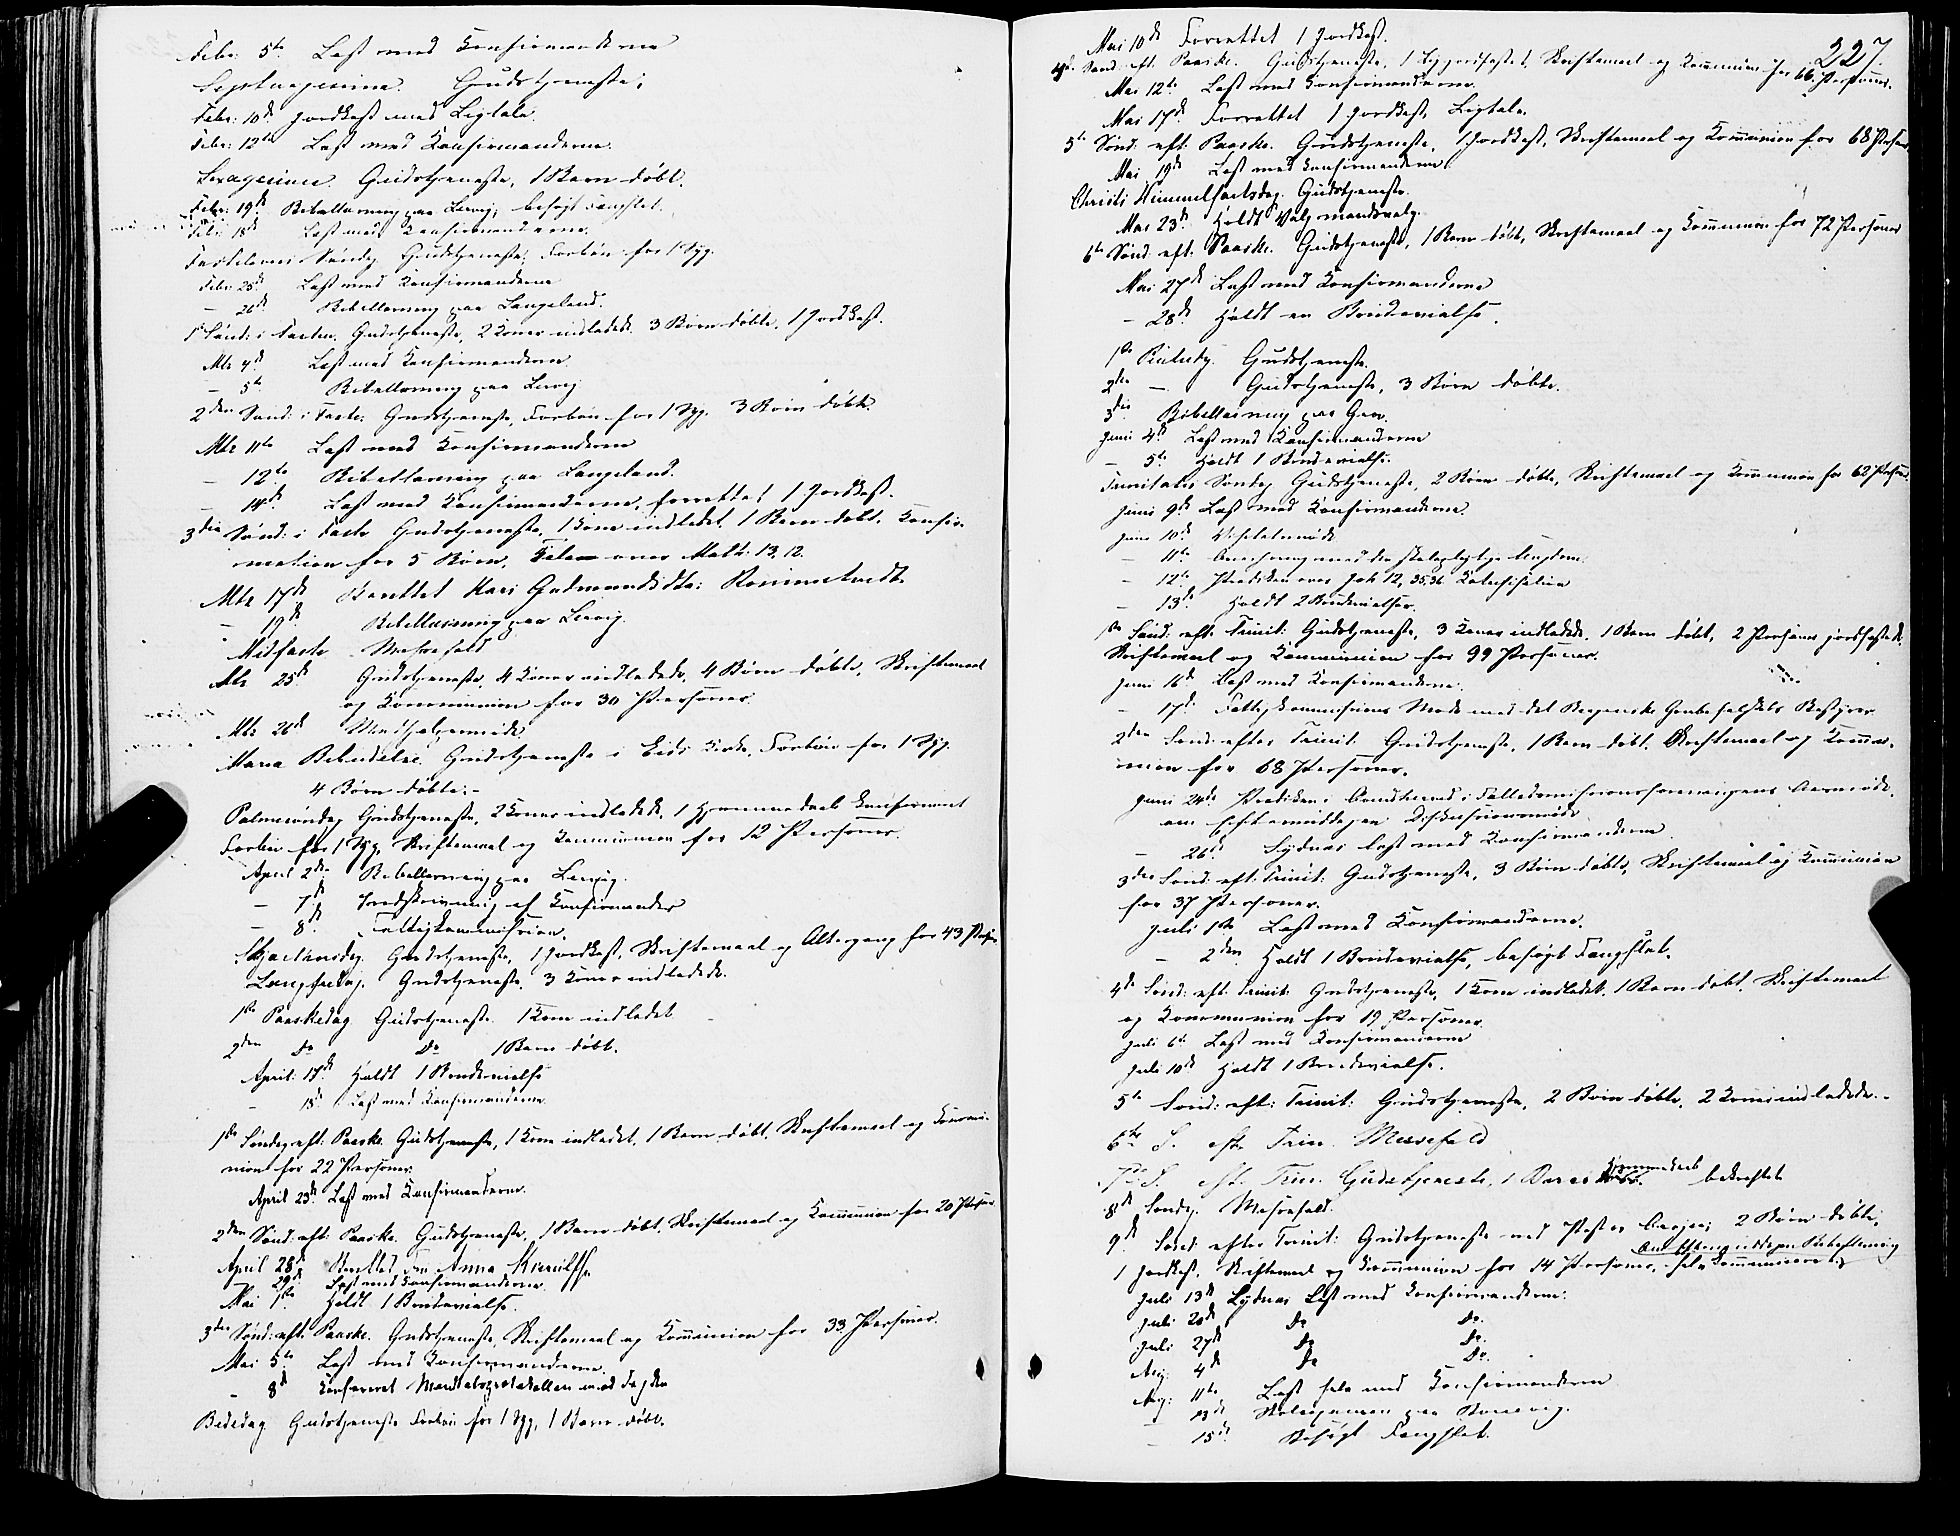 Febr. 5te Læst med Konfirmanderne
Septuagesima. Gudstjeneste;
Febr: 10de Jordkast med Ligtale.
Febr: 12te Læst med Konfirmanderne.
Sexagesima. Gudstjeneste, 1 Barn døbt.
Febr. 19de Bibellæsning paa Lervig, besøgt Fængslet.
Febr. 18de Læst med Konfirmanderne.
Fastelavns Søndag Gudstjeneste, Forbøn for 1 Syg.
Febr 25de Læst med Konfirmanderne
— 26de Bibellæsning paa Langeland.
1ste Sønd: i Fasten. Gudstjeneste, 2 Koner indledede. 3 Børn døbte, 1 Jordkast.
Mtz 4de Læst med Konfirmanderne
— 5te Bibellæsning paa Lervig
2den Sønd: i Faste: Gudstjeneste, Forbøn for 1 Syg. 3 Børn døbte.
Mtz 11te Læst med Konfirmanderne
— 12te Bibellæsning paa Langeland.
— 14de Læst med Konfirmanderne, forrettet 1 Jordkast.
3die Sønd: i Faste Gudstjeneste. 1 Kone indledet. 1 Barn døbt. Konfir-
mation for 5 Børn. Tale over Matt: 13, 12.
Mtz 17de Berettet Kari Gudmundsdtr: Rommetvedt.
— 19de Bibellæsning paa Lervig.
Midfaste Messefald
Mtz 25de Gudstjeneste, 4 Koner indledede, 4 Børn døbte, Skriftemaal
og Kommunion for 30 Personer
Mtz 26de Medhjælpermøde
Maria Bebudelse. Gudstjeneste i Eids Kirke. Forbøn for 1 Syg.
4 Børn døbte.-
Palmesøndag Gudstjeneste, 2 Koner indledede, 1 Hjemmedaab konfirmeret
Forbøn for 1 Syg, Skriftemaal og Kommunion for 12 Personer.
April 2den Bibellæsning paa Lervig.
— 7de Indskrivning af Konfirmander
— 8de Fattigkommission.
Skjærthorsdag. Gudstjeneste, 1 Jordkast, Skriftemaal og Altergang for 43 Pers.
Langfredag. Gudstjeneste, 3 Koner indledede.
1ste Paaskedag Gudstjeneste. 1 Kone indledet
2den Do Do 1 Barn døbt.
April: 17de Holdt 1 Brudevielse
— 18de Læst med Konfirmanderne
1ste Søndag eft: Paaske. Gudstjeneste, 1 Kone indledet, 1 Barn døbt. Skriftemaal og Kommu-
nion for 22 Personer.
April 23de Læst med Konfirmanderne.
2den Sønd: eft: Paaske. Gudstjeneste, 1 Barn døbt, Skriftemaal og Kommunion for 20 Person.
April 28de Anna
29de Læst med Konfirmanderne
Mai 1ste Holdt 1 Brudevielse.
3die Sønd: eft: Paaske. Gudstjeneste, Skriftemaal og Kommunion for 33 Personer.
Mai 5te Læst med Konfirmanderne
— 8de Konfereret Mandtalsprotokollen med Fogden
Bededag Gudstjeneste Forbøn for 1 Syg, 1 Barn døbt.
227.
Mai 10de Forrettet 1 Jordkast.
4de Sønd. eft. Paaske. Gudstjeneste, Skriftemaal og Kommunion for 66 Personer.
Mai 12te Læst med Konfirmanderne.
Mai 17de Forrettet 1 Jordkast, Ligtale.
5te Sønd. eft. Paaske. Gudstjeneste, 1 Jordkast, Skriftemaal og Kommunion for 68 Person.
Mai 19de Læst med Konfirmanderne
Christi Himmelfartsdag. Gudstjeneste.
Mai 23de Holdt Valgmandsvalg.
6te Sønd eft. Paaske. Gudstjeneste, 1 Barn døbt, Skriftemaal og Kommunion for 72 Personer
Mai 27de Læst med Konfirmanderne
— 28de Holdt en Brudevielse.
1ste Pintsedag. Gudstjeneste.
2den — Gudstjeneste, 3 Børn døbte.
3die Bibellæsning paa
Juni 4de Læst med Konfirmanderne
— 5te Holdt 1 Brudevielse.
Trinitatis Søndag Gudstjeneste, 2 Børn døbte, Skriftemaal og Kommunion for 62 Person.
Juni 9de Læst med Konfirmanderne.
Juni 10de
— 11te med den
— 12te Prædiken over Joh 12, 35,36
— 13de Holdt 2 Brudevielser.
1ste Sønd: eft. Trinit: Gudstjeneste, 3 Koner indledede. 1 Barn døbt, 2 Personer jordfæstede.
Skriftemaal og Kommunion for 99 Personer.
Juni 16de Læst med Konfirmanderne.
— 17de Fattigkommissions Møde med det Bergenske Bestyrer
2den Sønd: efter Trinit. Gudstjeneste, 1 Barn døbt. Skriftemaal og Kommu-
nion for 68 Personer.
Juni 24de Prædiken i Aarsmøde.
om Eftermiddagen Diskussionsmøde
— 26de Sydnæs Læst med Konfirmanderne
3die Sønd: eft. Trinit: Gudstjeneste, 3 Børn døbte, Skriftemaal og Kommunion
for 37 Personer.
Juli 1ste Læst med Konfirmanderne.
— 2den Holdt 1 Brudevielse, besøgt Fængslet.
4de Sønd: eft: Trinit: Gudstjeneste, 1 Kone indledet. 1 Barn døbt. Skriftemaal
og Kommunion for 19 Personer.
Juli 6te Læst med Konfirmanderne
Juli 10de Holdt 1 Brudevielse.
5te Sønd: eft: Trinit: Gudstjeneste, 2 Børn døbte, 2 Koner indledede.-
6te S. eft Trin. Messefald
7de S. eft. Trin. Gudstjeneste, 1 Barns Hjemmedaab bekræftet
8de Søndag. Messefald.
9de Sønd. efter Trinit: Gudstjeneste ved Pastor 2 Børn døbte,
Om Eftermiddagen Bibellæsning
1 Jordkast, Skriftemaal og Kommunion for 14 Personer,
Juli 13de Sydnæs Læst med Konfirmanderne.
Juli 20de Do Do.
Juli 27de Do Do.
Aug. 4de Do Do.
Aug: 11te Læst selv med Konfirmanderne
— 13de Skoleexamen paa
— 15de Besøgt Fængslet.